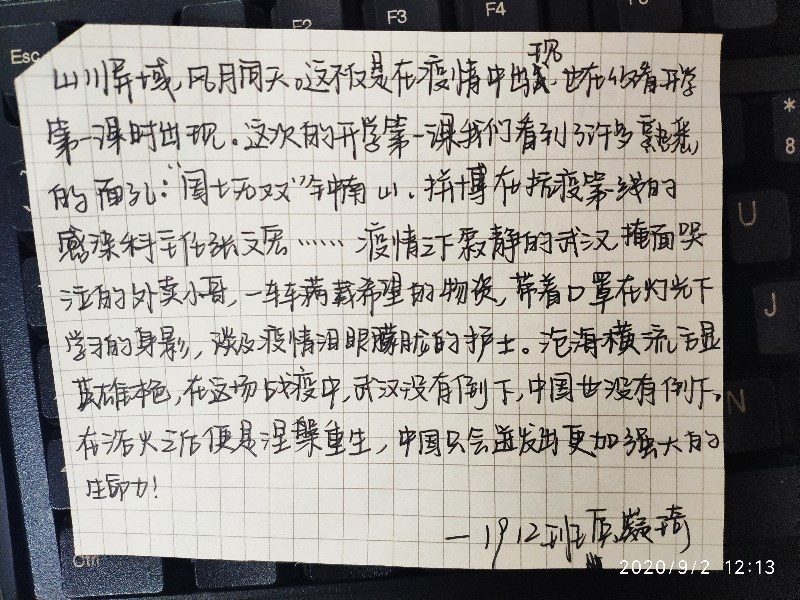 Esc
F2
F3
F4
*
8
U
J
N
山川异域,风月同天。这不仅是在疫情中出现 也在收看开学
第一课时出现。这次的开学第一课我们看到了许多熟悉
的面孔:“国士无双”钟南山、拼搏在抗疫第一线的
感染科主任张文宏……疫情之下寂静的武汉,掩面哭
泣的外卖小哥,一车车满载希望的物资,带着口罩在灯光下
学习的身影,谈及疫情泪眼朦胧的护士。沧海横流方显
英雄本色,在这场战疫中,武汉没有倒下,中国也没有倒下。
在浴火之后便是涅槃重生,中国只会迸发出更加强大的
生命力!
—1912班
2020/9/2 12:13